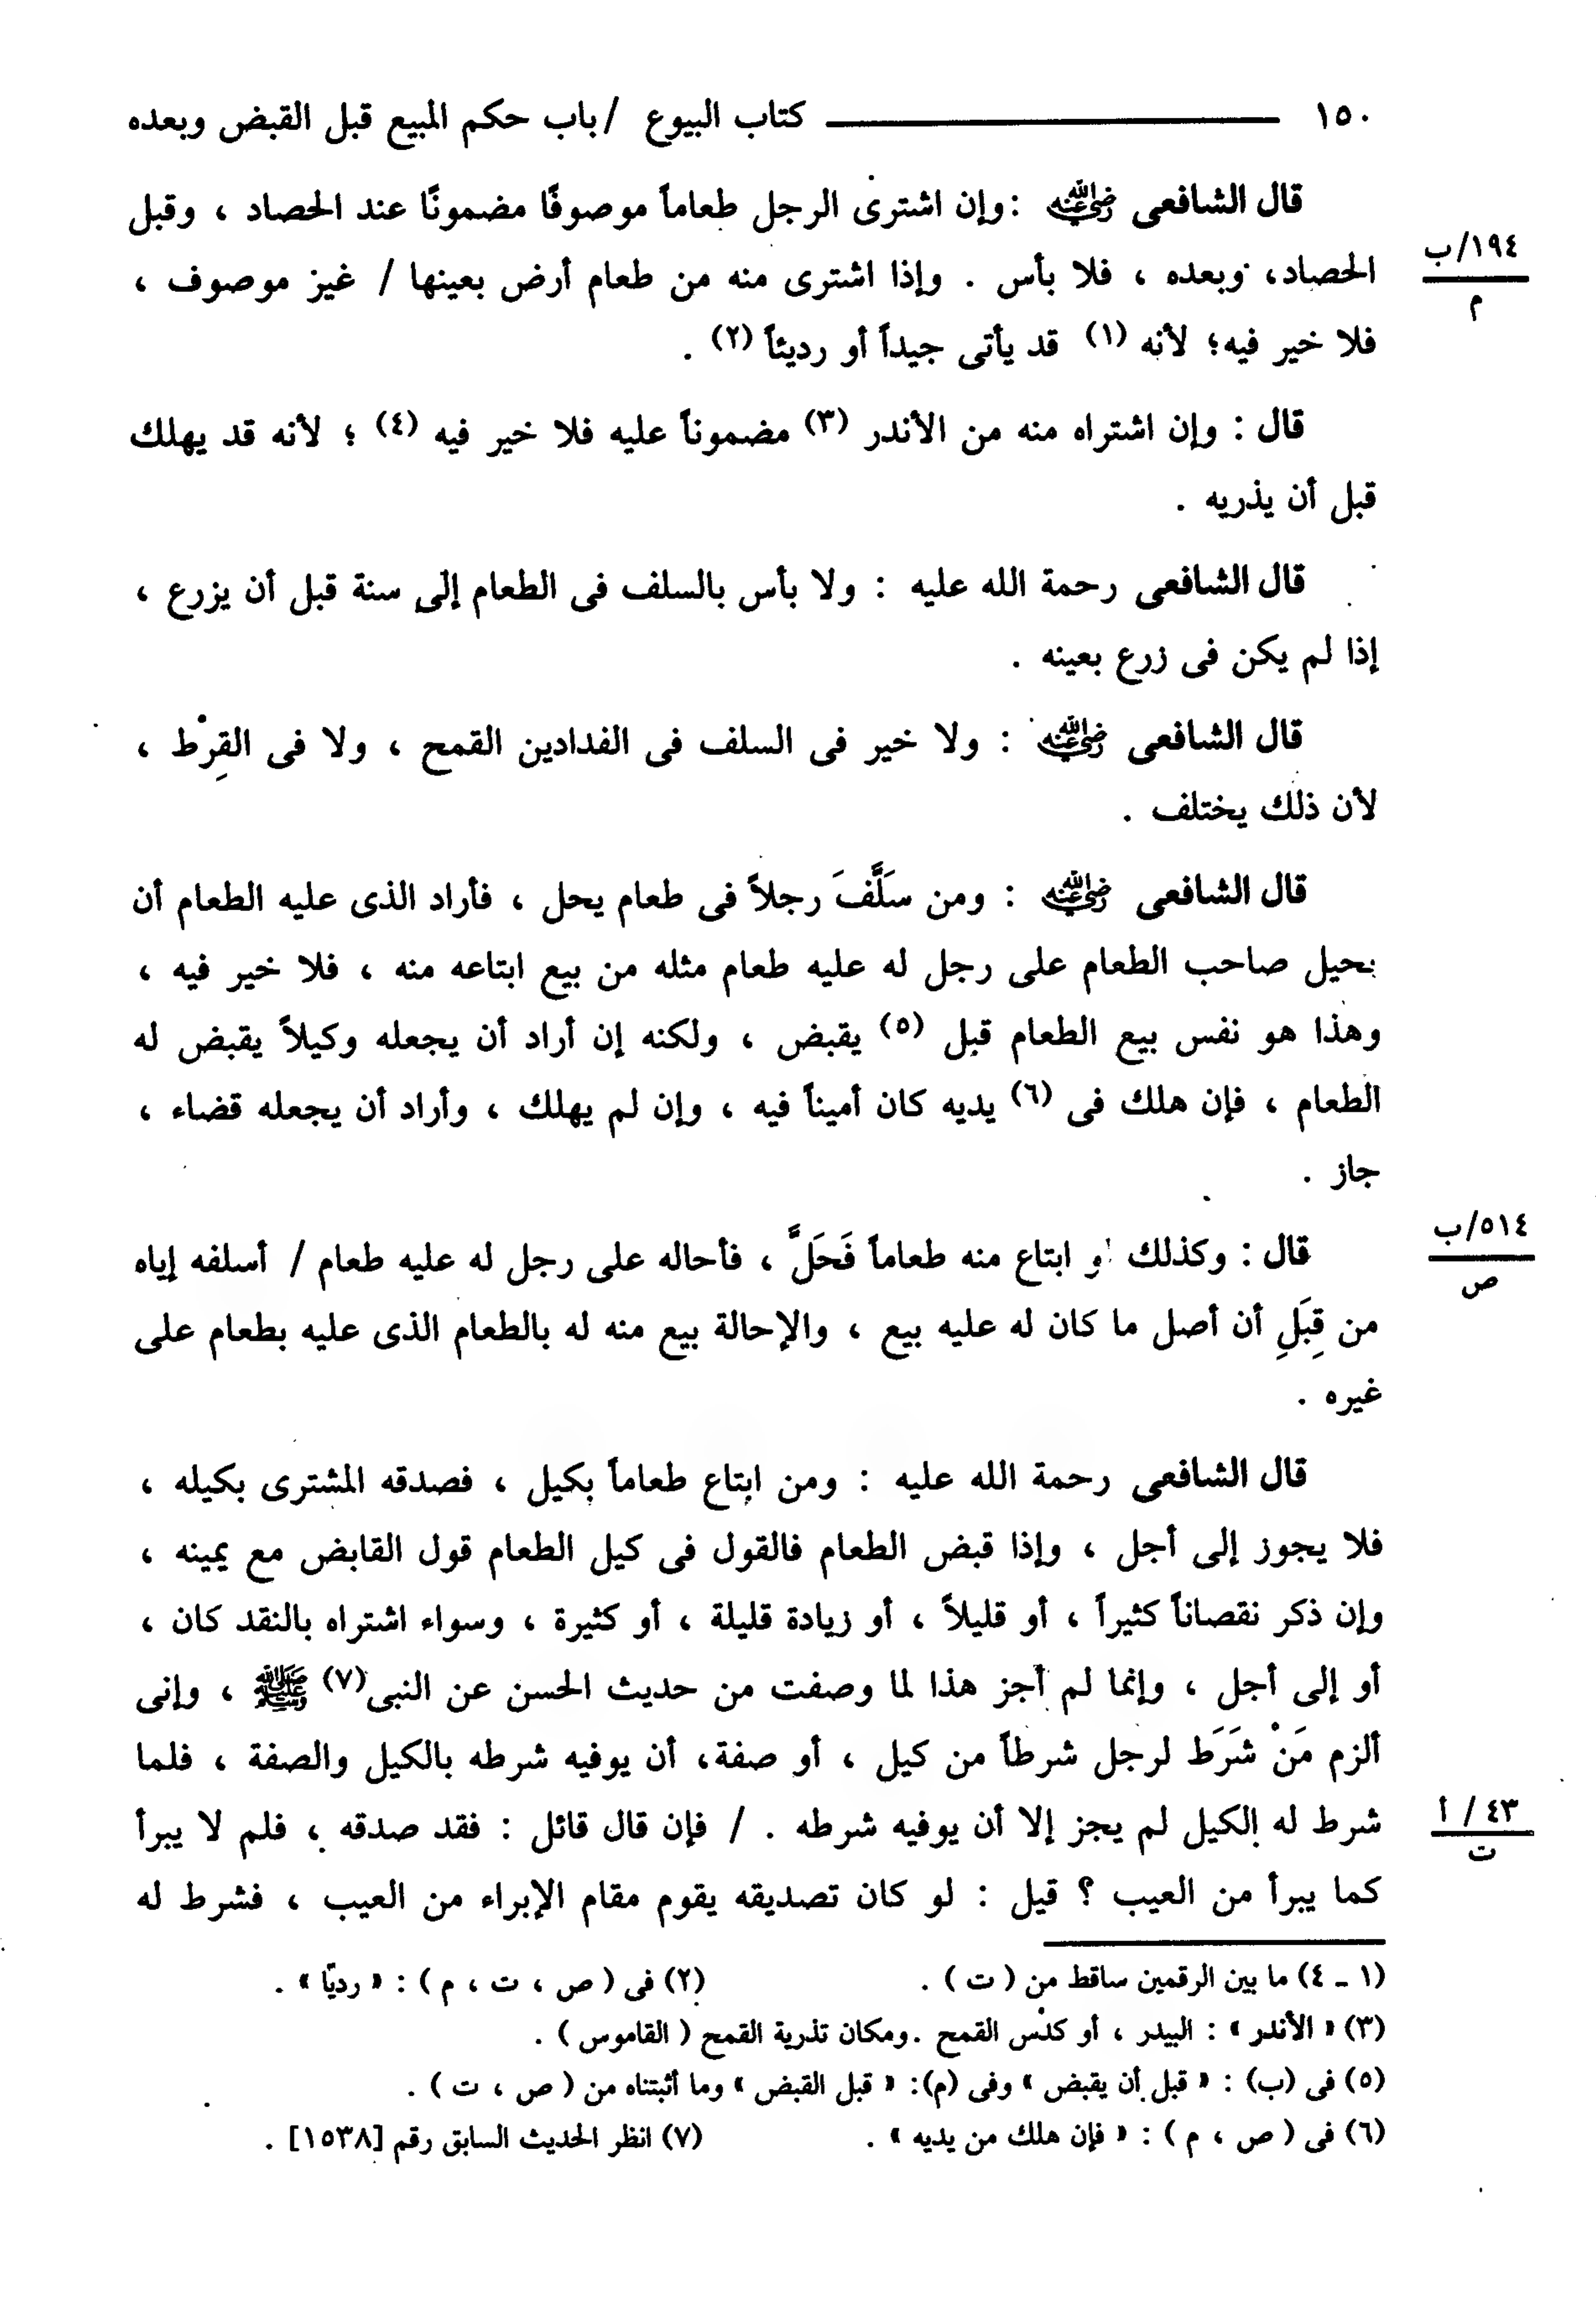 ١٥٠ ــــــــــــــــ كتاب البيوع / باب حكم المبيع قبل القبض وبعده
قال الشافعى رضي الله عنه : وإن اشترى الرجل طعاماً موصوفًا مضمونًا عند الحصاد ، وقبل
١٩٤/ب
م
الحصاد، وبعده ، فلا بأس . وإذا اشترى منه من طعام أرض بعينها / غير موصوف ،
فلا خير فيه؛ لأنه (١) قد يأتى جيداً أو رديئاً (٢) .
قال : وإن اشتراه منه من الأندر (٣) مضموناً عليه فلا خير فيه (٤) ؛ لأنه قد يهلك
قبل أن يذريه .
قال الشافعى رحمة الله عليه : ولا بأس بالسلف فى الطعام إلى سنة قبل أن يزرع ،
إذا لم يكن فى زرع بعينه .
قال الشافعى رضي الله عنه : ولا خير فى السلف فى الفدادين القمح ، ولا فى القِرْط ،
لأن ذلك يختلف .
قال الشافعى رضي الله عنه : ومن سَلَّفَ رجلاً فى طعام يحل ، فأراد الذى عليه الطعام أن
يحيل صاحب الطعام على رجل له عليه طعام مثله من بيع ابتاعه منه ، فلا خير فيه ،
وهذا هو نفس بيع الطعام قبل (٥) يقبض ، ولكنه إن أراد أن يجعله وكيلاً يقبض له
الطعام ، فإن هلك فى (٦) يديه كان أميناً فيه ، وإن لم يهلك ، وأراد أن يجعله قضاء ،
جاز .
٥١٤/ب
ص
قال : وكذلك لو ابتاع منه طعاماً فَحَلَّ ، فأحاله على رجل له عليه طعام / أسلفه إياه
من قِبَلِ أن أصل ما كان له عليه بيع ، والإحالة بيع منه له بالطعام الذى عليه بطعام على
غيره .
قال الشافعى رحمة الله عليه : ومن ابتاع طعاماً بكيل ، فصدقه المشترى بكيله ،
فلا يجوز إلى أجل ، وإذا قبض الطعام فالقول فى كيل الطعام قول القابض مع يمينه ،
وإن ذكر نقصاناً كثيراً ، أو قليلاً ، أو زيادة قليلة ، أو كثيرة ، وسواء اشتراه بالنقد كان ،
أو إلى أجل ، وإنما لم أجز هذا لما وصفت من حديث الحسن عن النبى(٧) ﷺ ، وإنى
ألزم مَنْ شَرَط لرجل شرطاً من كيل ، أو صفة، أن يوفيه شرطه بالكيل والصفة ، فلما
٤٣ / أ
ت
شرط له الكيل لم يجز إلا أن يوفيه شرطه . / فإن قال قائل : فقد صدقه ، فلم لا يبرأ
كما يبرأ من العيب ؟ قيل : لو كان تصديقه يقوم مقام الإبراء من العيب ، فشرط له
(١ ـ ٤) ما بين الرقمين ساقط من ( ت ) . (٢) فى ( ص ، ت ، م ) : « رديًا » .
(٣) « الأندر » : البيدر ، أو كدْس القمح . ومكان تذرية القمح ( القاموس ) .
(٥) فى (ب) : « قبل أن يقبض » وفى (م): « قبل القبض » وما أثبتناه من ( ص ، ت ) .
(٦) فى ( ص ، م ) : « فإن هلك من يديه » . (٧) انظر الحديث السابق رقم [١٥٣٨] .